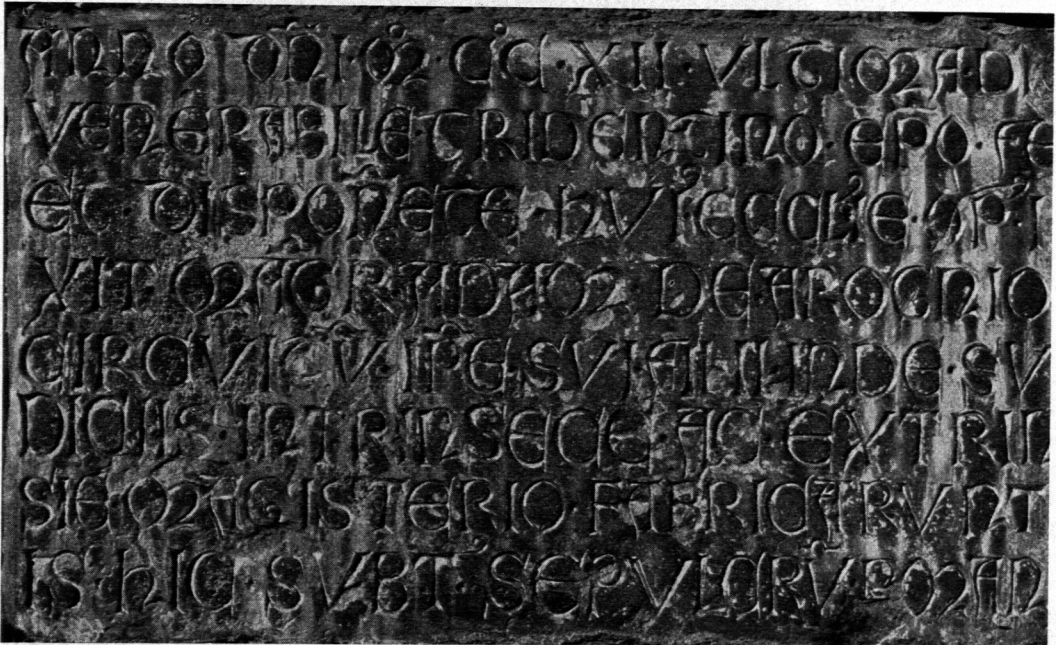 ANNO DNI M CC XII VLTIMA DI
VENERABILE TRIDENTINO EPO FE
ET DISPONETE HVI ECCLIE OP I
XIT MAG R ADAM DE AROGNIO
CIRCVITV IPE SVI FILII INDE SV
DICIIS INTRINSECE AC EXTRIN
SIE MAGISTERIO FABRICARVNT
IS HIC SVBT SEPVLCRV MAN